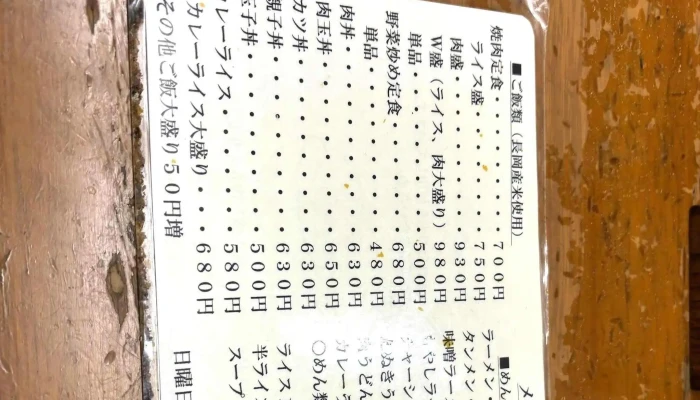 ■ご飯類（長岡産米使用）
焼肉定食・・・・・・・・700円
ライス盛・・・・・・・750円
肉盛・・・・・・・・・930円
W盛（ライス、肉大盛り）980円
単品・・・・・・・・・500円
野菜炒め定食・・・・・・680円
単品・・・・・・・・・480円
肉丼・・・・・・・・・・630円
肉玉丼・・・・・・・・・650円
カツ丼・・・・・・・・・630円
親子丼・・・・・・・・・630円
玉子丼・・・・・・・・・500円
カレーライス・・・・・・580円
カレーライス大盛り・・・680円
その他ご飯大盛り50円増
メ
■めん
ラーメン・
タンメン・
味噌ラー
やしラ
ャーシ
ぬきう
うどん
カレー
〇めん
ライス
半ライ
スープ
日曜日